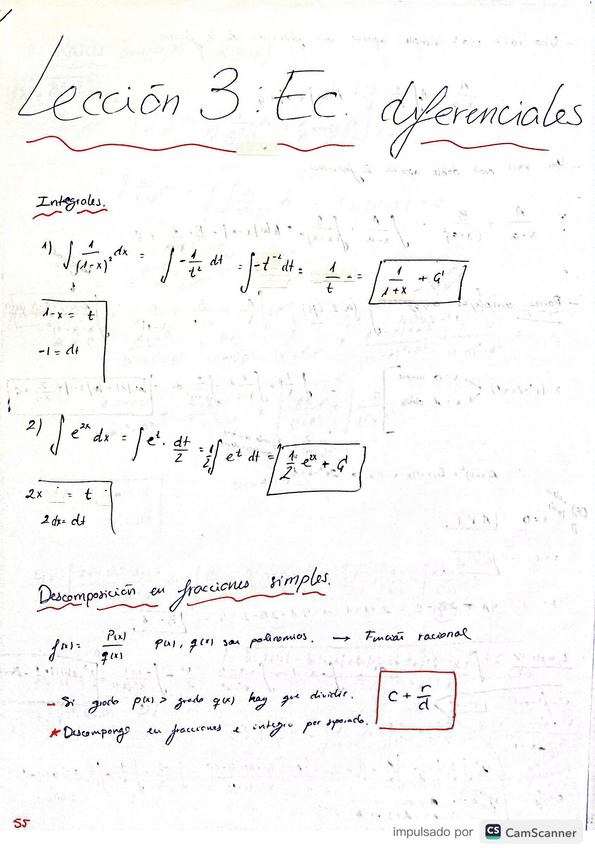 Lección 3: Ec. diferenciales
Integrales.
1) ∫ 1/(1-x)² dx = ∫ -1/t² dt = ∫ -t⁻² dt = 1/t = 1/(1+x) + C
1-x = t
-1 = dt
2) ∫ e²ˣ dx = ∫ eᵗ · dt/2 = 1/2 ∫ eᵗ dt = 1/2 e²ˣ + C
2x = t
2dx = dt
Descomposición en fracciones simples.
f(x) = P(x)/q(x) P(x), q(x) son polinomios. → Función racional
- Si grado p(x) > grado q(x) hay que dividir. C + r/d
* Descompongo en fracciones e integro por separado.
55
impulsado por CS CamScanner